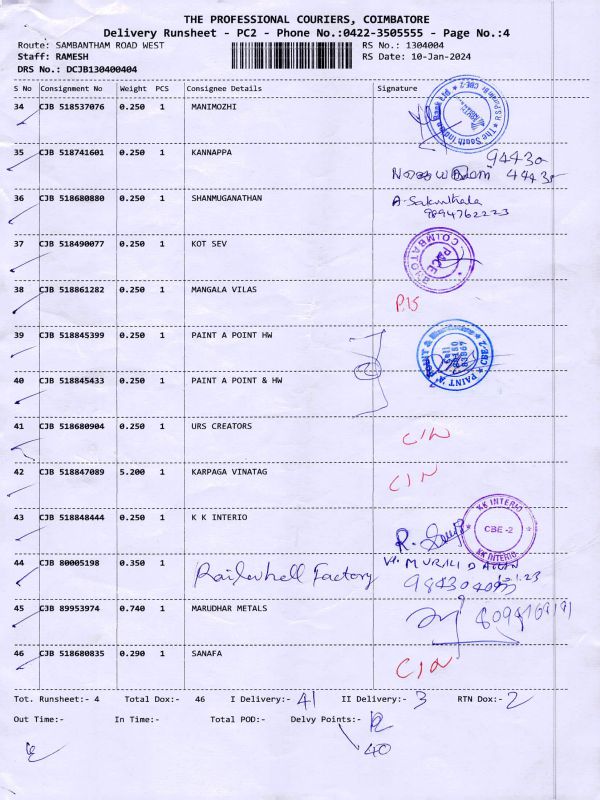 THE PROFESSIONAL COURIERS, COIMBATORE
Delivery Runsheet - PC2 - Phone No.:0422-3505555 - Page No.:4
Route: SAMBANTHAM ROAD WEST RS No.: 1304004
Staff: RAMESH RS Date: 10-Jan-2024
DRS No.: DCJB130400404
S No Consignment No Weight PCS Consignee Details Signature
34 CJB 518537076 0.250 1 MANIMOZHI
The South Indian Bank
35 CJB 518741601 0.250 1 KANNAPPA
94430
44430
36 CJB 518680880 0.250 1 SHANMUGANATHAN A. Sakunthala
9894762223
37 CJB 518490077 0.250 1 KOT SEV
COIMBATORE
38 CJB 518861282 0.250 1 MANGALA VILAS
39 CJB 518845399 0.250 1 PAINT A POINT HW
40 CJB 518845433 0.250 1 PAINT A POINT & HW
PAINT 'A' POINT & CBE-2
41 CJB 518680904 0.250 1 URS CREATORS C/N
42 CJB 518847089 5.200 1 KARPAGA VINATAG C/N
43 CJB 518848444 0.250 1 K K INTERIO
KK INTERIO CBE -2 KK INTERIO
44 CJB 80005198 0.350 1 Factory
45 CJB 89953974 0.740 1 MARUDHAR METALS
46 CJB 518680835 0.290 1 SANAFA C/N
Tot. Runsheet:- 4 Total Dox:- 46 I Delivery:- 41 II Delivery:- 3 RTN Dox:- 2
Out Time:- In Time:- Total POD:- Delvy Points:-
40